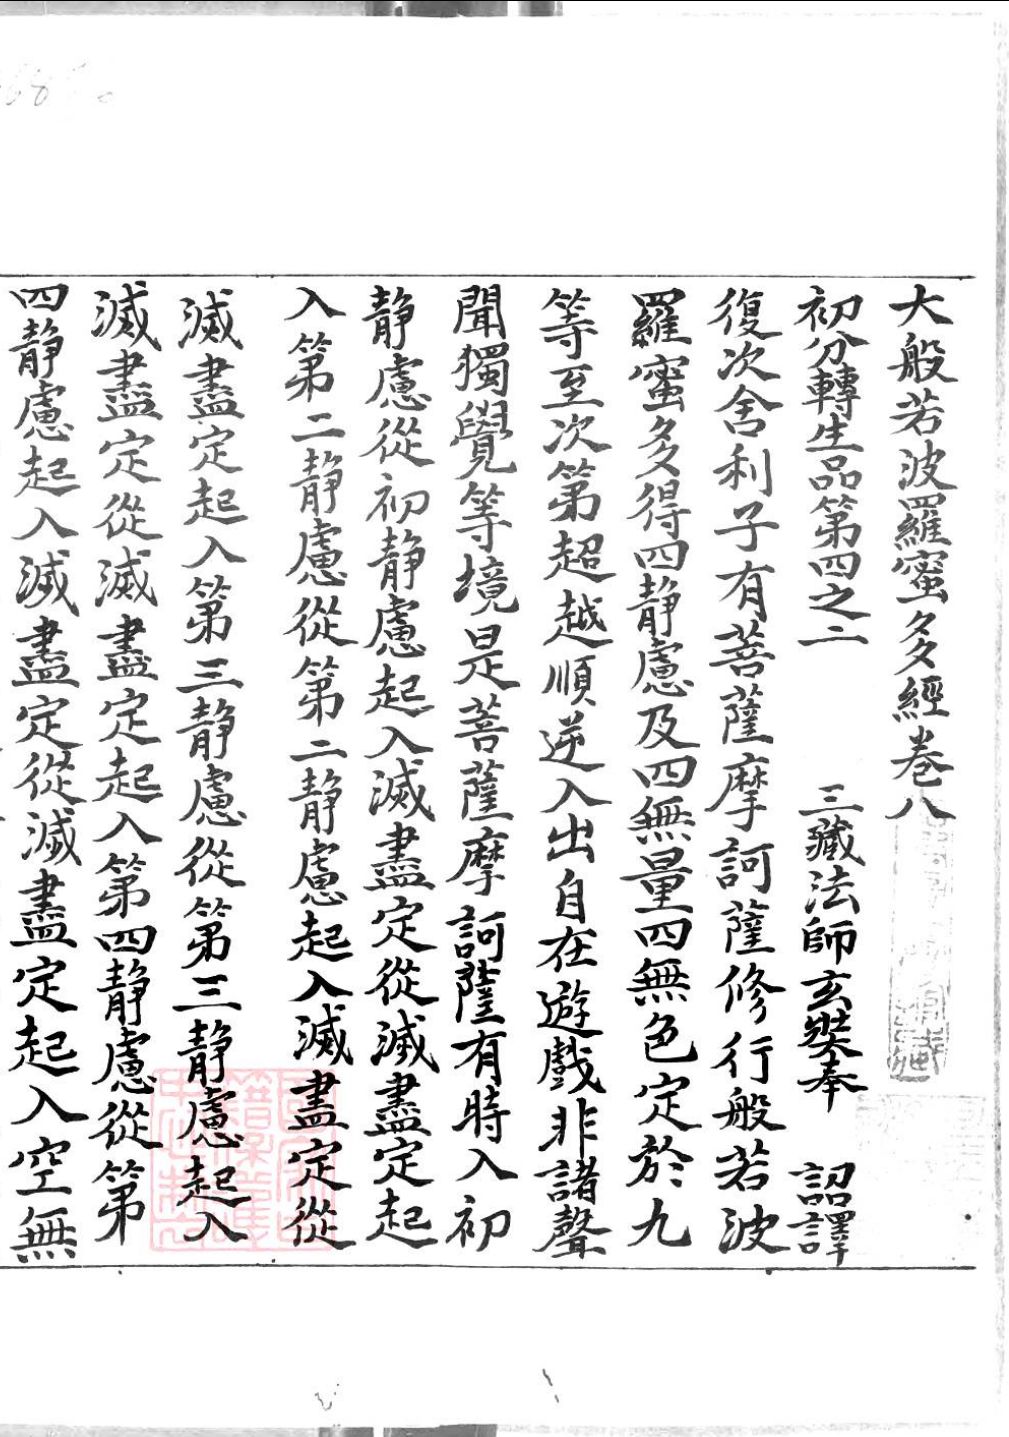 大般若波羅蜜多經卷八
初分轉生品第四之二　三藏法師玄奘奉　詔譯
復次舍利子有菩薩摩訶薩修行般若波
羅蜜多得四靜慮及四無量四無色定於九
等至次第超越順逆入出自在遊戲非諸聲
聞獨覺等境是菩薩摩訶薩有時入初
靜慮從初靜慮起入滅盡定從滅盡定起
入第二靜慮從第二靜慮起入滅盡定從
滅盡定起入第三靜慮從第三靜慮起入
滅盡定從滅盡定起入第四靜慮從第
四靜慮起入滅盡定從滅盡定起入空無